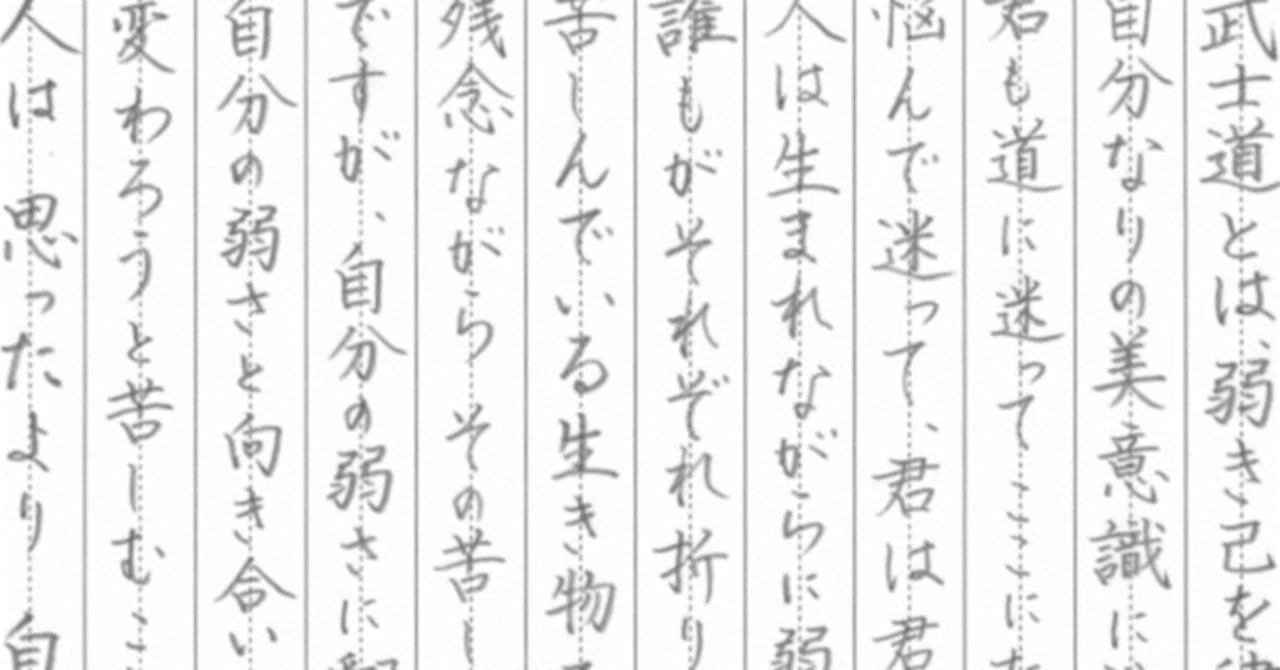 武士道とは、弱き己を
自分なりの美意識に
君も道に迷ってここに
悩んで迷って、君は君
人は生まれながらに弱
誰もがそれぞれ折り
苦しんでいる生き物
残念ながらその苦し
ですが、自分の弱さに
自分の弱さと向き合い
変わろうと苦しむこ
人は思ったより自